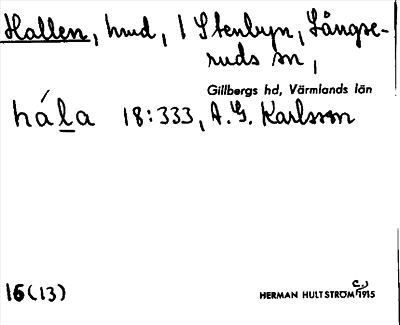 Hallen, hmd, 1 Stenbyn, Långse-
ruds sn,
Gillbergs hd, Värmlands län
hála 18:333, A. G. Karlsson
16(13)
HERMAN HULTSTRÖM C.J 1915